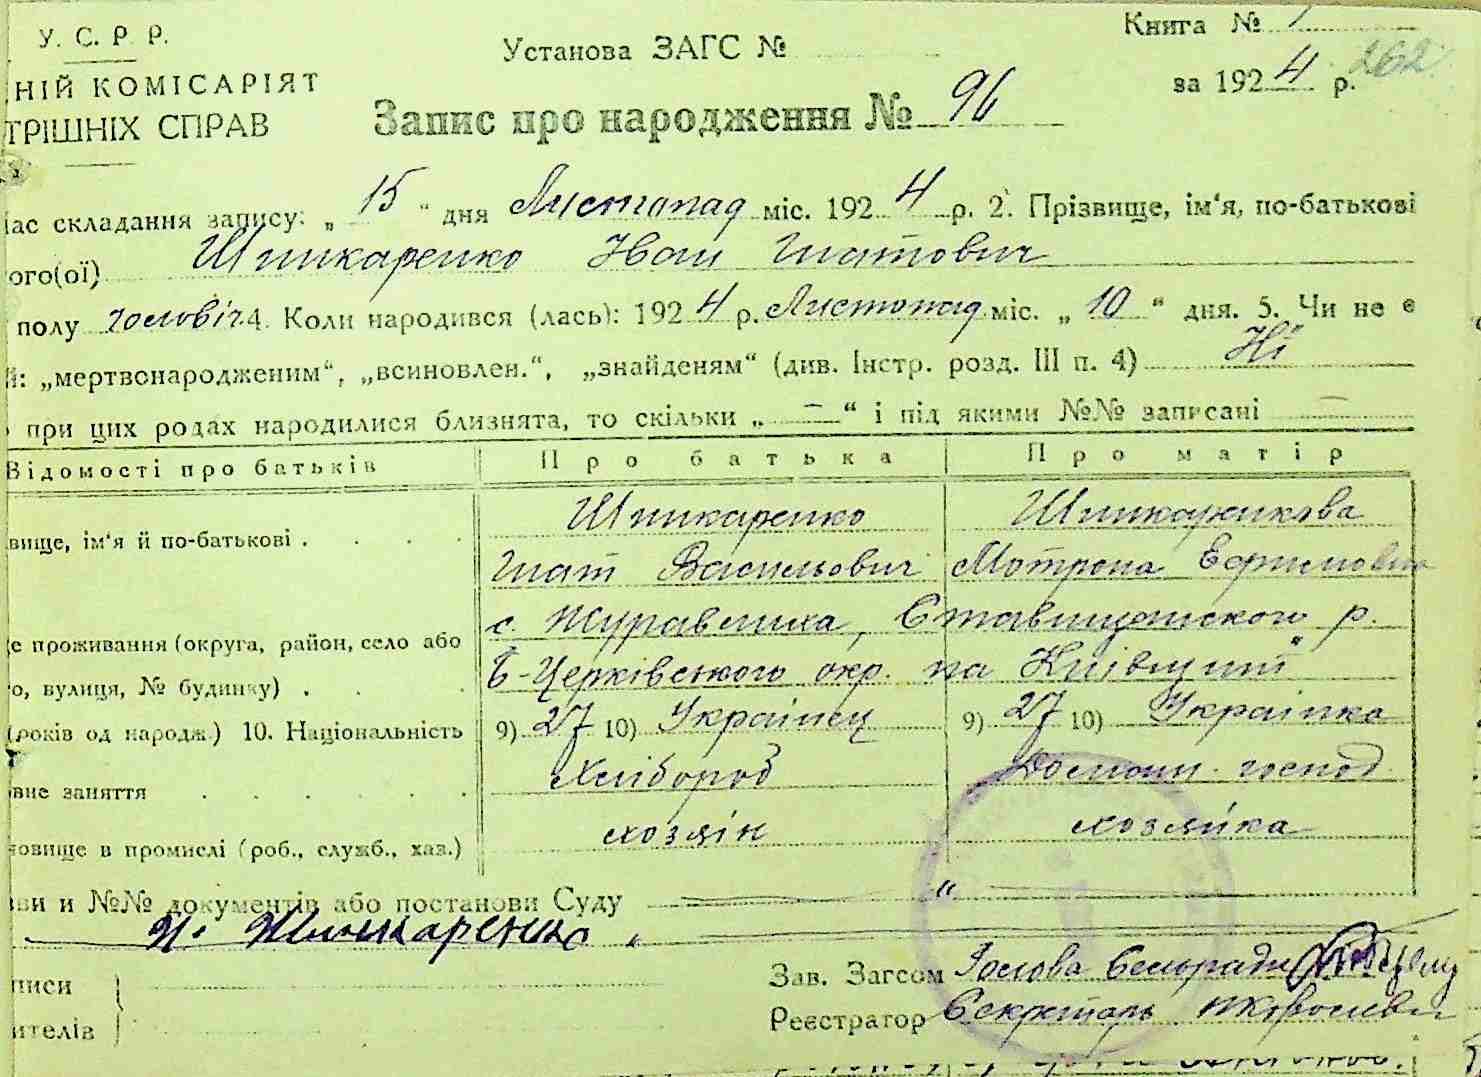 У. С. Р. Р.
Установа ЗАГС №
Книга № 1
НІЙ КОМІСАРІЯТ
за 1924 р. 262
ТРІШНІХ СПРАВ
Запис про народження № 96
час складання запису: „ 15 “ дня Листопад міс. 1924 р. 2. Прізвище, ім‘я, по-батькові
ого(ої) Шинкаренко Іван Игнатович
полу чоловіч. 4. Коли народився (лась): 1924 р. Листопад міс. „ 10 “ дня. 5. Чи не є
й: „мертвонародженим“, „всиновлен.“, „знайденям“ (див. Інстр. розд. III п. 4) Ні
при цих родах народилися близнята, то скільки „ — “ і під якими №№ записані —
Відомості про батьків
Про батька
Про матір
вище, ім‘я й по-батькові . . . .
Шинкаренко
Игнат Васильович
Шинкаренкова
Мотрона Ефимовна
с. Журавлиха, Ставищанського р.
е проживання (округа, район, село або
Б-Церківського окр. на Київщині
о, вулиця, № будинку) . .
(років од народж.) 10. Національність
9) 27 10) Українец
9) 27 10) Українка
вне заняття . . . . . .
Хлібороб
Домашн. господ.
новище в промислі (роб., служб., хаз.)
хозяін
хозяйка
ви и №№ документів або постанови Суду — „ —
И. Шинкаренко
писи
ителів
Зав. Загсом Голова Сельради
Реєстратор Секретарь